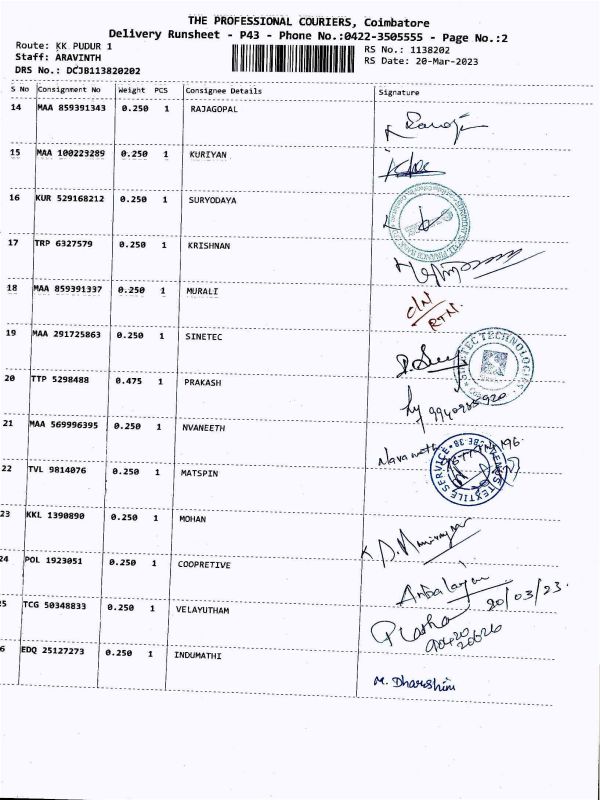 THE PROFESSIONAL COURIERS, Coimbatore
Delivery Runsheet - P43 - Phone No.:0422-3505555 - Page No.:2
Route: KK PUDUR 1
Staff: ARAVINTH
DRS No.: DCJB113820202
RS No.: 1138202
RS Date: 20-Mar-2023
S No Consignment No Weight PCS Consignee Details Signature
14 MAA 859391343 0.250 1 RAJAGOPAL
15 MAA 100223289 0.250 1 KURIYAN
16 KUR 529168212 0.250 1 SURYODAYA
17 TRP 6327579 0.250 1 KRISHNAN
18 MAA 859391337 0.250 1 MURALI
RTN
19 MAA 291725863 0.250 1 SINETEC
SINETEC TECHNOLOGIES
20 TTP 5298488 0.475 1 PRAKASH
21 MAA 569996395 0.250 1 NVANEETH
Navaneeth
22 TVL 9814076 0.250 1 MATSPIN
TEXTILE SERVICE
23 KKL 1390890 0.250 1 MOHAN
24 POL 1923051 0.250 1 COOPRETIVE
20/03/23.
5 TCG 50348833 0.250 1 VELAYUTHAM
Platha
90420
20626
6 EDQ 25127273 0.250 1 INDUMATHI
M. Dharshini